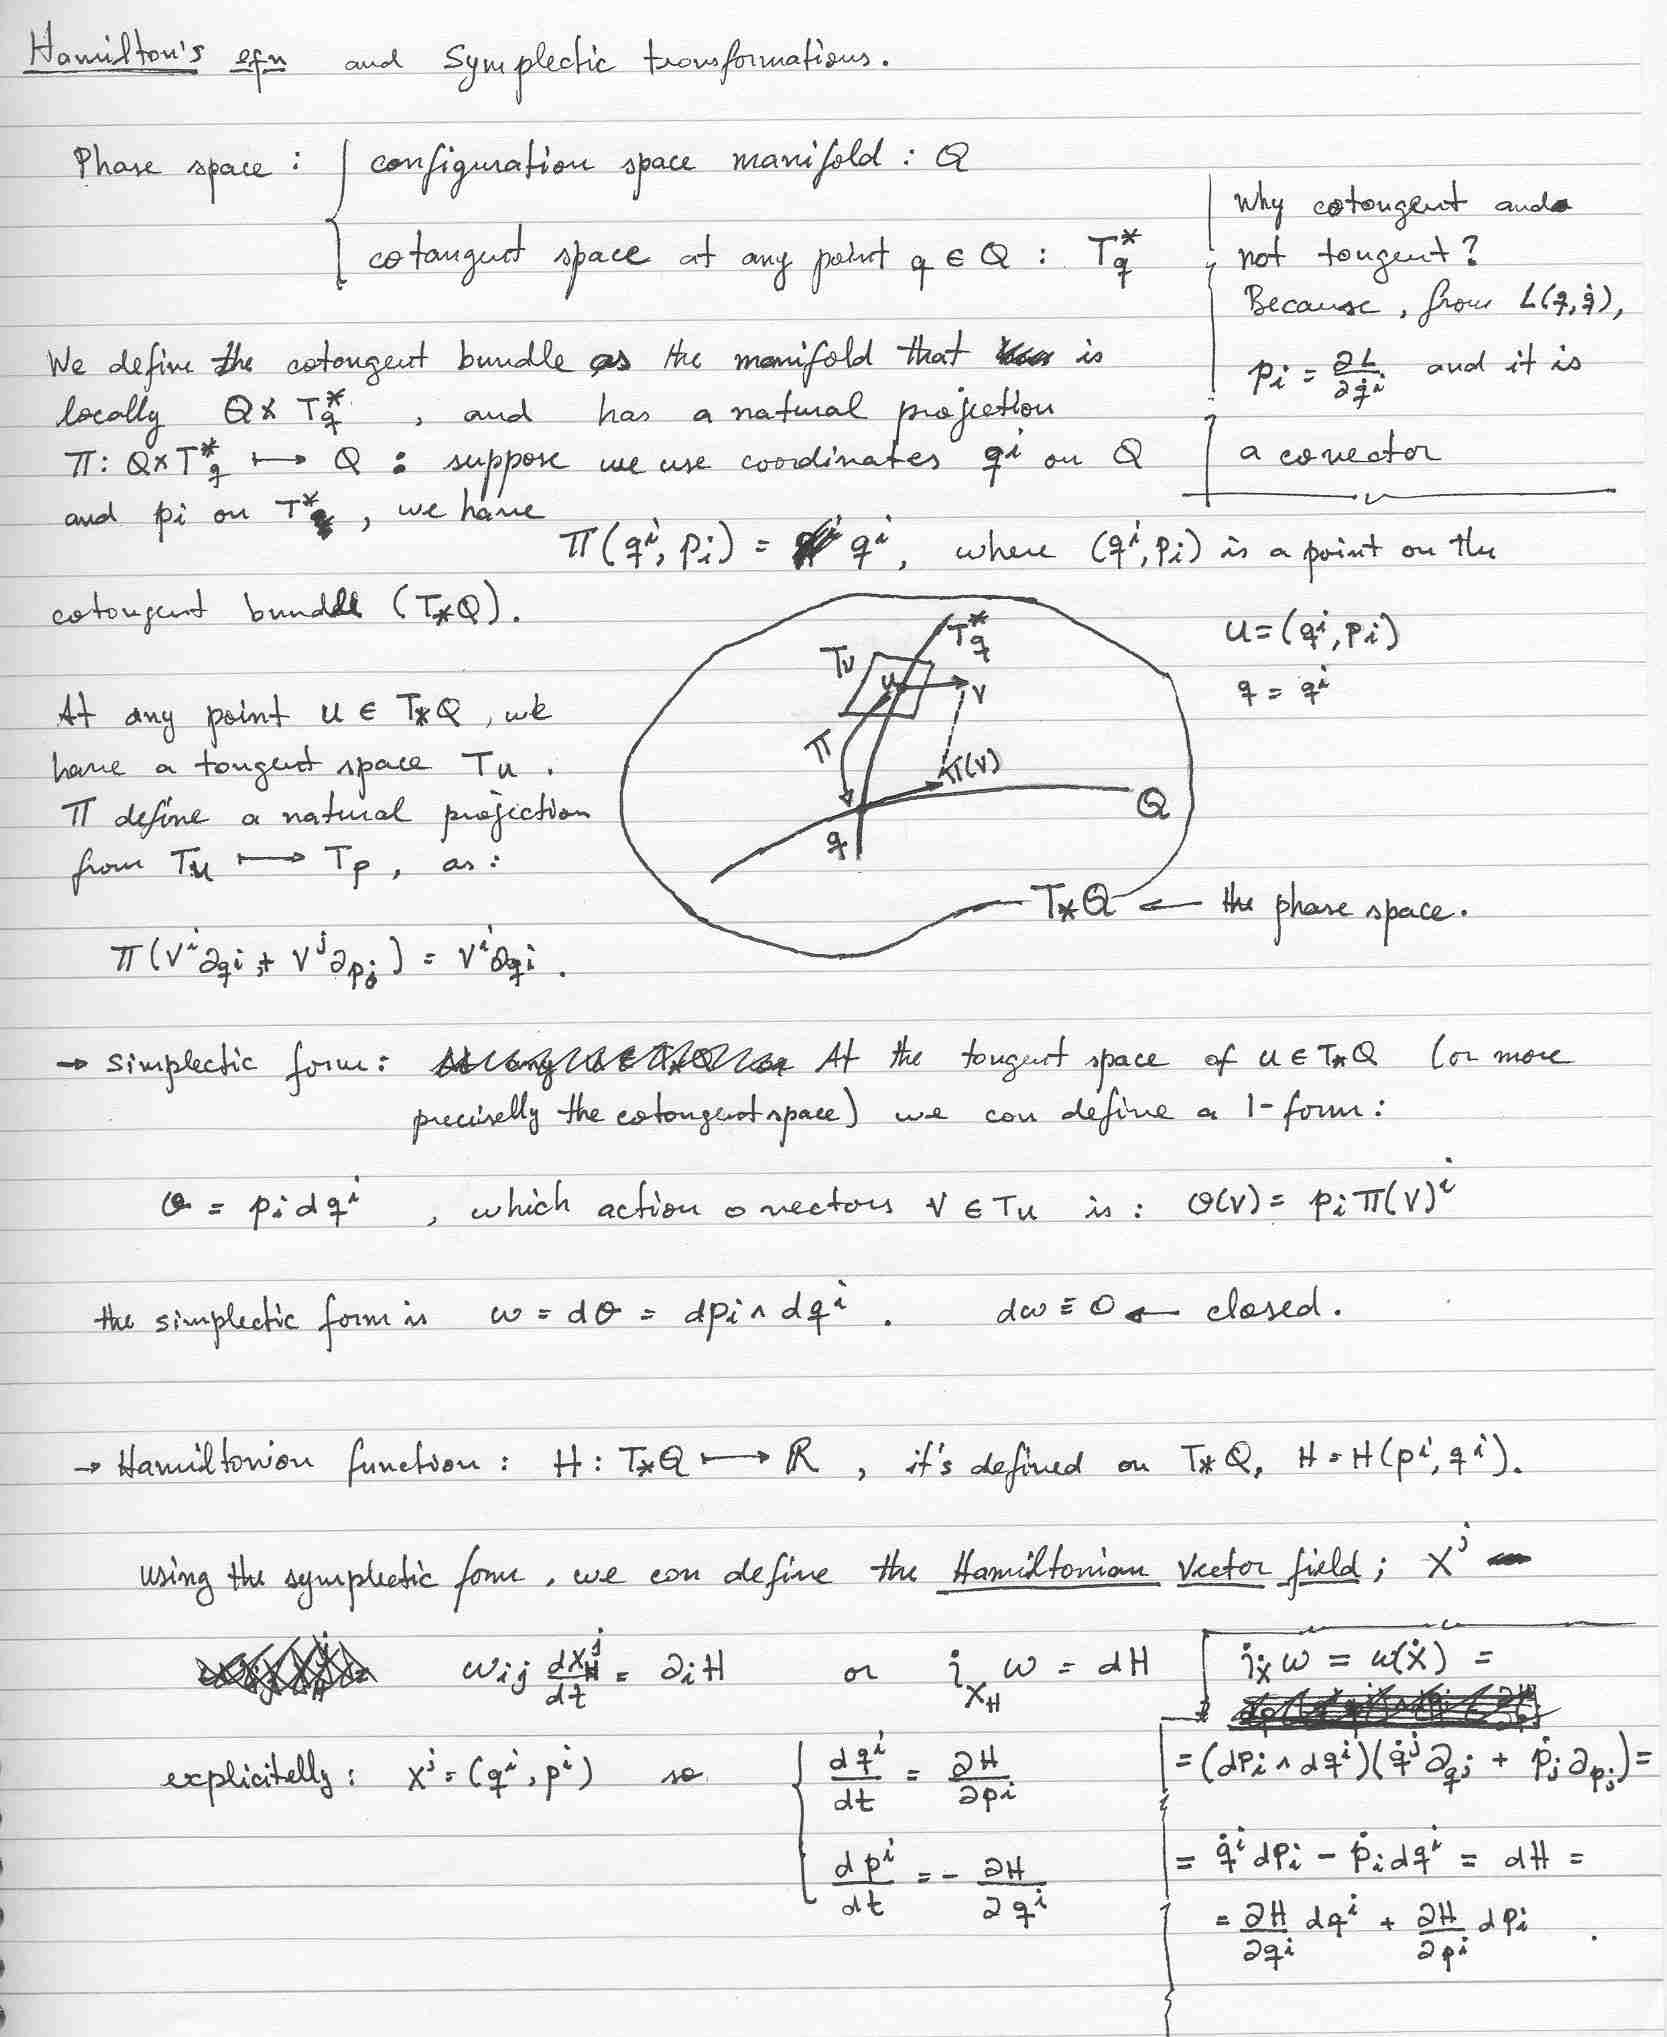 Hamilton's eqn and Symplectic transformations.
Phase space : { configuration space manifold : Q
cotangent space at any point q ∈ Q : T*q
Why cotangent and
not tangent?
Because, from L(q,q̇),
pi = ∂L/∂q̇^i and it is
a covector
We define the cotangent bundle as the manifold that is
locally Q × T*q , and has a natural projection
π : Q×T*q ↦ Q : suppose we use coordinates q^i on Q
and pi on T*q, we have
π(q^i, pi) = q^i, where (q^i, pi) is a point on the
cotangent bundle (T*Q).
u = (q^i, pi)
q = q^i
Tu
u
T*q
v
π
π(v)
q
Q
T*Q ← the phase space.
At any point u ∈ T*Q, we
have a tangent space Tu .
π define a natural projection
from Tu ↦ Tp, as :
π(v^i ∂q^i + v^j ∂pj) = v^i ∂q^i .
→ simplectic form : At the tangent space of u ∈ T*Q (or more
preciselly the cotangent space) we can define a 1-form :
θ = pi dq^i , which action o vectors v ∈ Tu is : θ(v) = pi π(v)^i
the simplectic form is ω = dθ = dpi ∧ dq^i . dω ≡ 0 ← closed.
→ Hamiltonian function : H : T*Q ↦ ℝ , it's defined on T*Q, H = H(p^i, q^i).
using the symplectic form, we can define the Hamiltonian Vector field ; X^j
ωij dX^j_H/dt = ∂iH or i_XH ω = dH
explicitelly : X^j = (q^i, p^i) so { dq^i/dt = ∂H/∂p^i
dp^i/dt = - ∂H/∂q^i
i_Ẋ ω = ω(Ẋ) =
= (dpi ∧ dq^i)(q̇^j ∂q^j + ṗj ∂pj) =
= q̇^i dpi - ṗi dq^i = dH =
= ∂H/∂q^i dq^i + ∂H/∂p^i dpi .